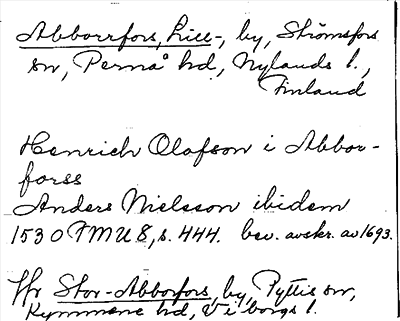 Abborrfors, Lill-, by, Strömsfors
sn, Pernå hd, Nylands l.,
Finland
Henrich Olafson i Abbor-
forss
Anders Nielsson ibidem
1530 FMU 8, s. 444. bev. avskr. av 1693.
Jfr Stor-Abborfors, by, Pyttis sn,
Kymmene hd, Viborgs l.